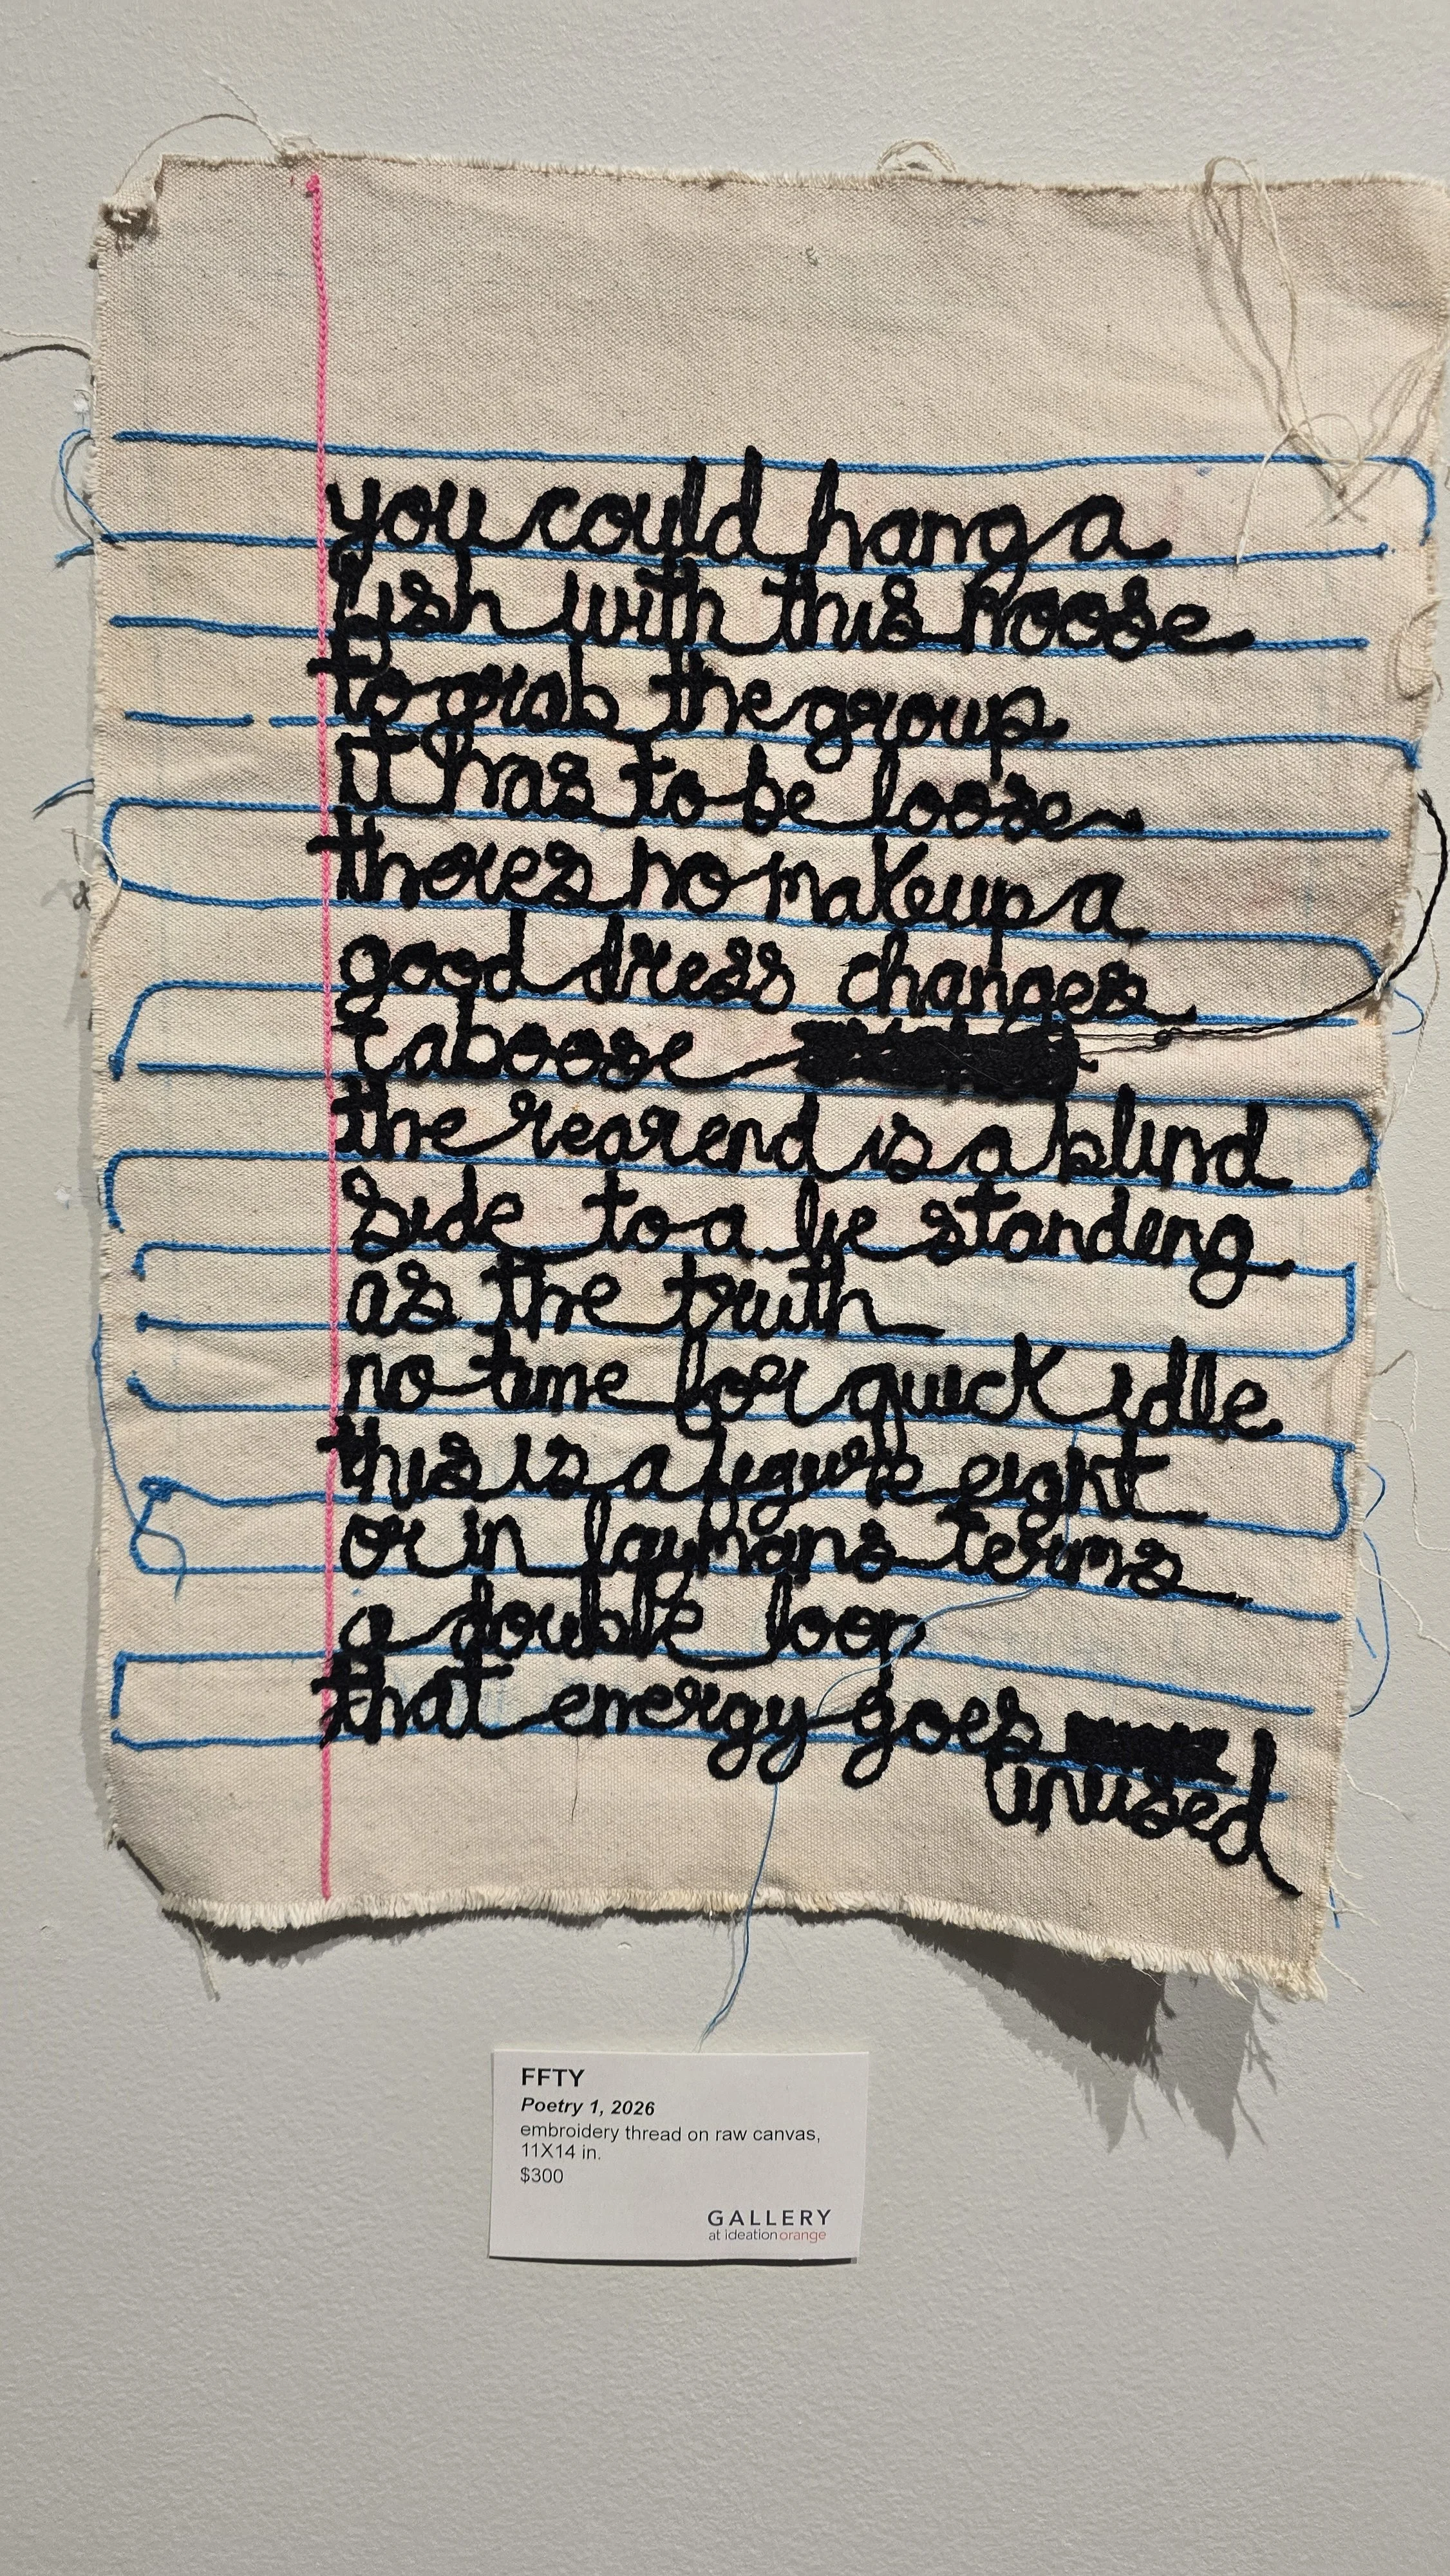 you could hang a
fish with this noose
to grab the group
it has to be loose
theres no makeup a
good dress changes
taboose
the rearend is a blind
side to a lie standing
as the truth
no time for quick idle
this is a figure eight
or in laymans terms
a double loop
that energy goes
unused
FFTY
Poetry 1, 2026
embroidery thread on raw canvas,
11X14 in.
$300
GALLERY
at ideationorange